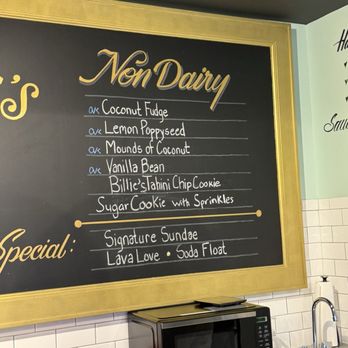 Non Dairy
Coconut Fudge
Lemon Poppyseed
Mounds of Coconut
Vanilla Bean
Billie's Tahini Chip Cookie
Sugar Cookie with Sprinkles
Special:
Signature Sundae
Lava Love • Soda Float